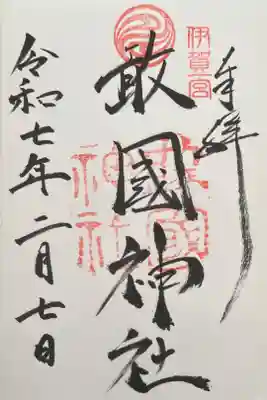 奉拝
伊賀一宮
敢國神社
敢國
神社
令和七年二月七日